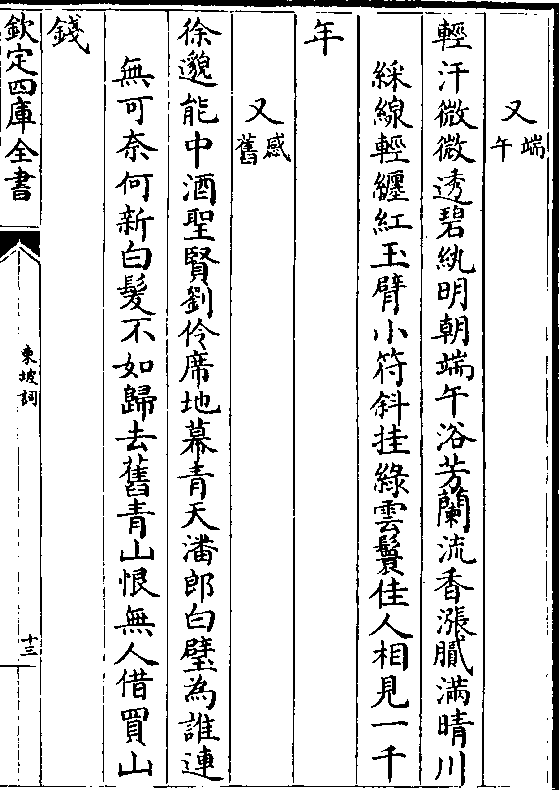 又端午
輕汗微微透碧紈明朝端午浴芳蘭流香漲膩滿晴川
綵線輕纏紅玉臂小符斜挂綠雲鬟佳人相見一千
年
又感舊
徐邈能中酒聖賢劉伶席地幕青天潘郎白璧為誰連
無可奈何新白髮不如歸去舊青山恨無人借買山
錢
欽定四庫全書
東坡詞
十三